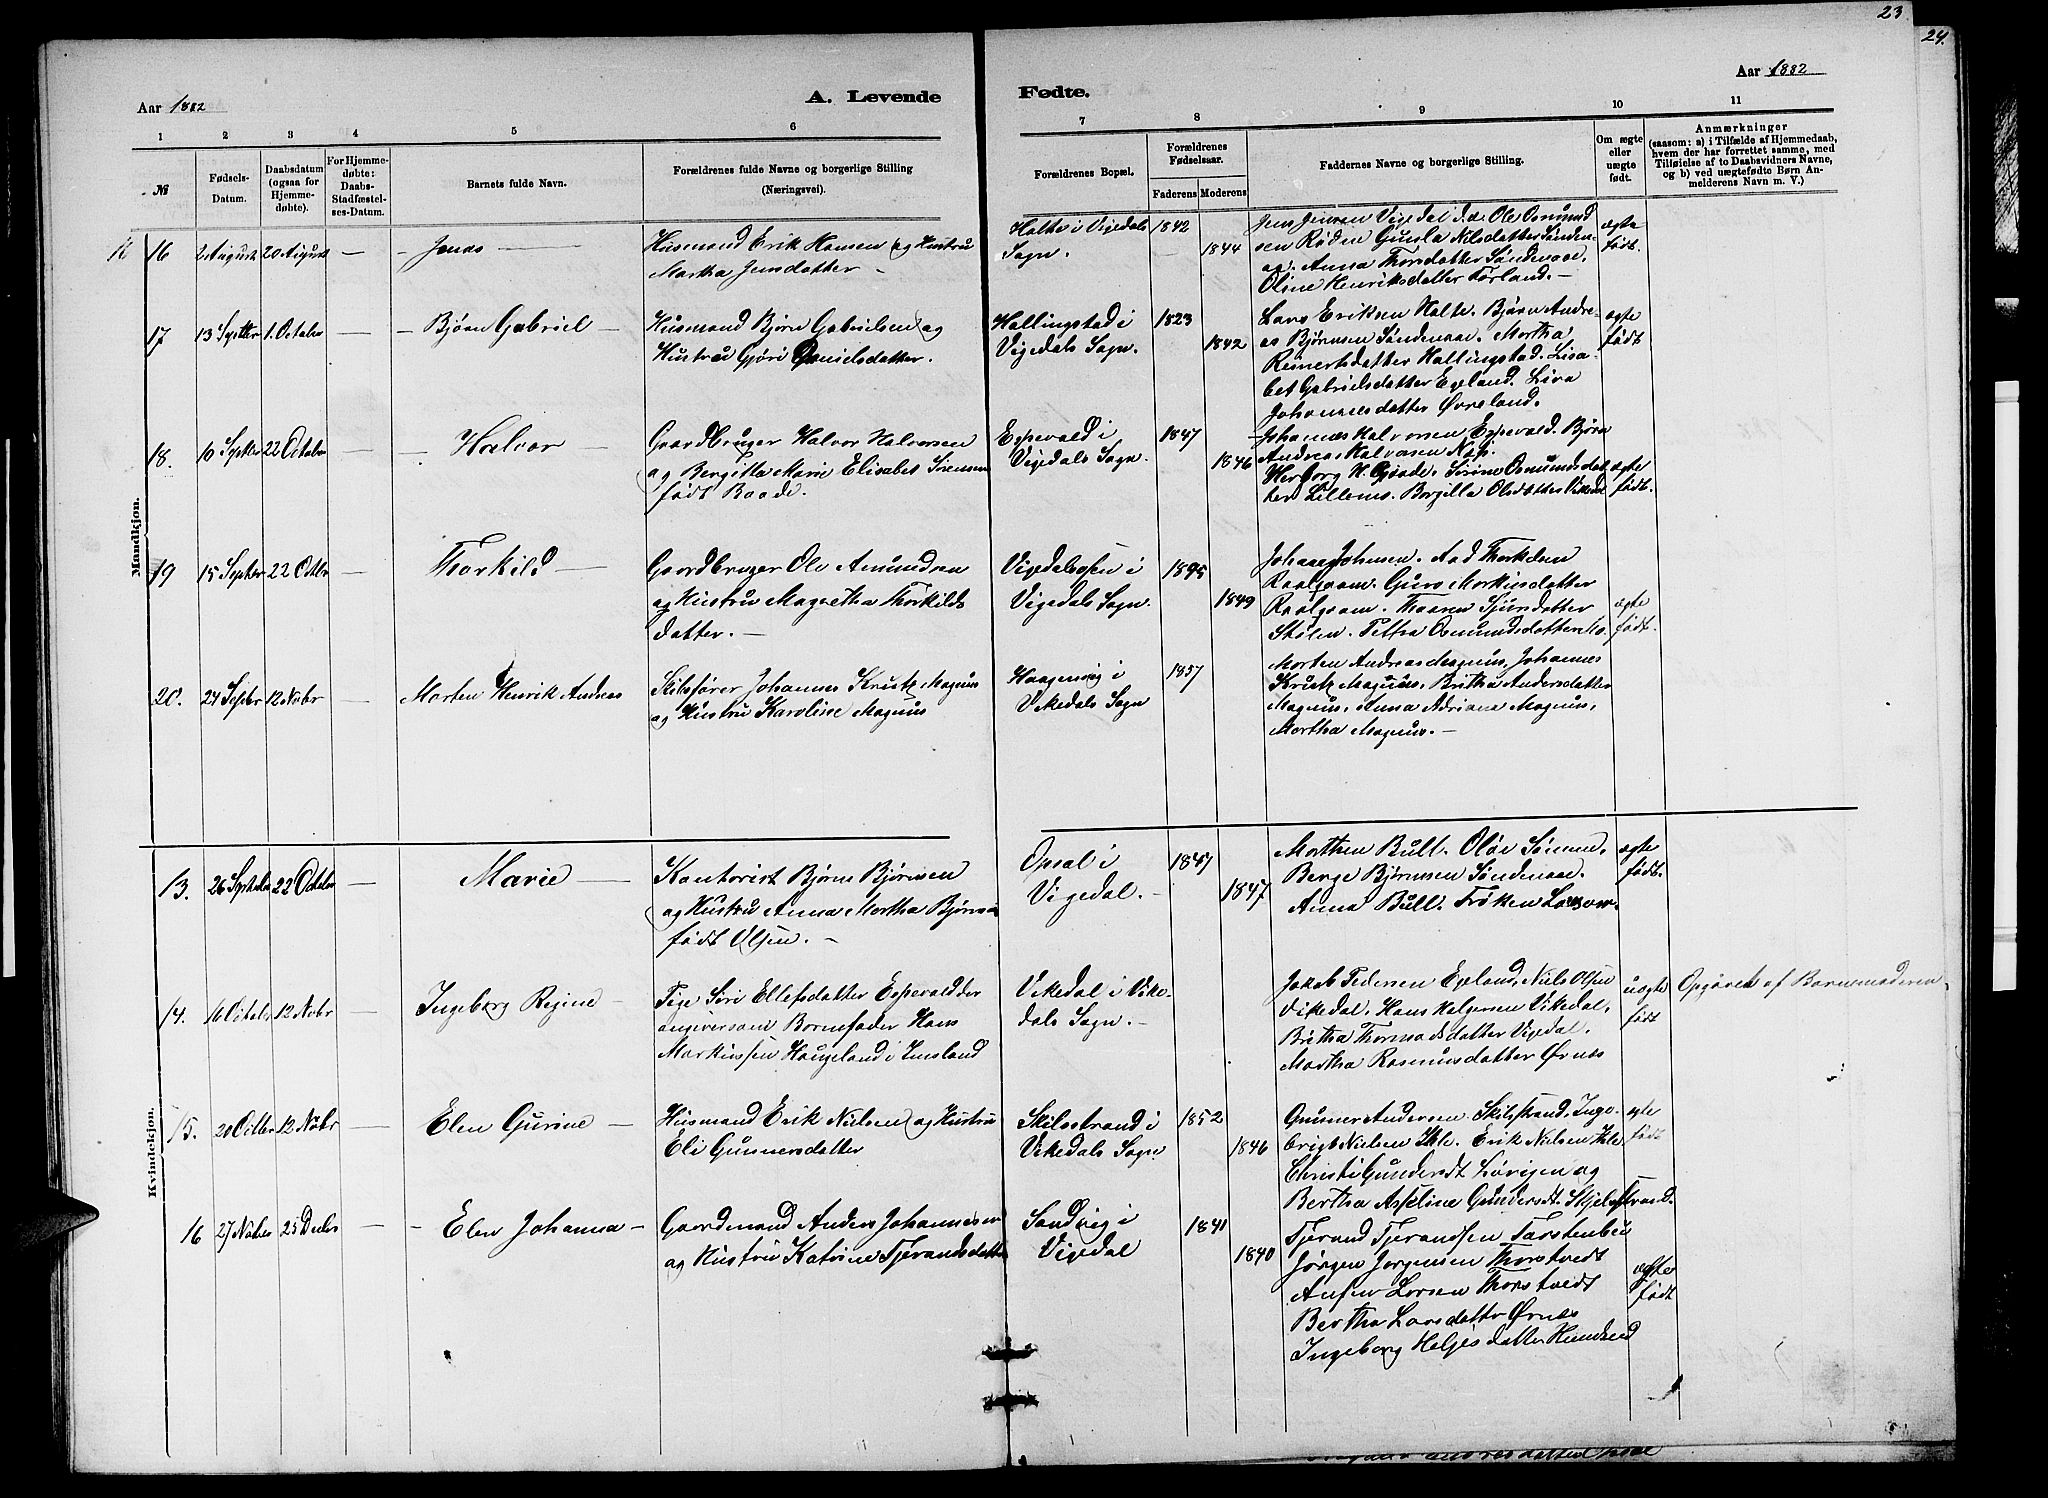 23
24.
Aar 1882
A. Levende
Fødte.
Aar 1882
1 2 3 4 5 6 7 8 9 10 11
№
Fødsels-Datum.
Daabsdatum (ogsaa for Hjemme-døbte).
For Hjemme-døbte: Daabs-Stadfæstel-ses-Datum.
Barnets fulde Navn.
Forældrenes fulde Navne og borgerlige Stilling
(Næringsvei).
Forældrenes Bopæl.
Forældrenes Fødselsaar.
Faderens Moderens
Faddernes Navne og borgerlige Stilling.
Om ægte eller uægte født.
Anmærkninger
(saasom: a) i Tilfælde af Hjemmedaab,
hvem der har forrettet samme, med
Tilføielse af to Daabsvidners Navne,
og b) ved uægtefødte Børn An-
melderens Navn m. V.)
Mandkjøn.
16 2 August 20 August — Jonas —
Husmand Erik Hansen og Hustru
Martha Jensdatter —
Halte i Vigedals
Sogn.
1842 1844
Jens Jensen Vigedal d.æ. Ole Osmund
sen Røden Gunla Nilsdatter Sønden-
aa. Anna Thorsdatter Søndenaae.
Oline Henriksdatter Førland. —
ægte
født.
17 13 Septbr 1 Octobr — Bjørn Gabriel —
Husmand Bjørn Gabrielsen og
Hustru Gjøri Danielsdatter.
Hallingstad i
Vigedals Sogn.
1823 1842
Lars Eriksen Halte. Bjørn Andre-
as Bjørnsen Søndenaae. Martha
Reinertsdatter Hallingstad. Lisa-
bet Gabrielsdatter Egeland. Liva
Johannesdatter Øvreland.
ægte
født
18. 10 Septbr 22 Octobr — Halvor —
Gaardbruger Halvor Halvorsen
og Bergitta Marie Elisabet Sivensen
født Baade.
Espevold i
Vigedals Sogn.
1847 1846
Johannes Halvorsen Espevold. Bjørn
Andreas Halvorsen
Herborg H. Sirine Osmundsdat
ter Lillenes. Bergilla Olsdatter Vikedal
ægte
født.
19 15 Septbr 22 Octbr — Thorkild —
Gaardbruger Ole Amundsen
og Hustru Magretha Thorkilds
datter. —
Vigedalsosen i
Vigedals Sogn.
1845 1849
Johannes Johnsen. Aad Thorkilsen
Raalgaam. Guro Markusdatter
Raalgaam. Thaaren Sjursdatter
Stølen. Petra Osmundsdatter
ægte
født.
20. 24 Septbr 12 Nobr — Morten Henrik Andreas
Skibsfører Johannes Krutz Magnus
og Hustru Karoline Magnus
Haagenvig i
Vikedals Sogn
1857
Morten Andreas Magnus, Johannes
Krutz Magnus, Britha Andersdatter
Magnus, Anna Adriana Magnus,
Martha Magnus. —
Kvindekjøn.
13. 26 Septbr 22 Octbr — Marie —
Kontorist Bjørne Bjørnsen
og Hustru Anna Martha Bjørnsen
født Olsen. —
Opsal i
Vigedal. —
1847 1847
Morthen Bull. Oløv Sømme.
Berge Bjørnsen Søndenaae.
Anna Bull. Frøken Larsen.
ægte
født.
14. 16 Octobr 12 Nobr — Ingeborg Regine —
Pige Siri Ellefsdatter Espevold der
angiver som Barnefader Hans
Markussen Haugeland i Imsland
Vikedal i Vike-
dals Sogn. —
Jakob Pedersen Egeland, Niels Olsen
Vikedal. Hans Helgersen Vikedal.
Britha Thomasdatter Vigedal.
Martha Rasmusdatter Ørnes
uægte
født
Opgivet af Barnemoderen.
15. 20 Octbr 12 Nobr — Elen Gurine —
Husmand Erik Nielsen og Hustru
Eli Gunnersdatter
Skilsstrand i
Vikedals Sogn
1852 1846
Gunner Andersen Skilsstrand. Inge-
brigt Nielsen Ihle. Erik Nielsen Ihle
Christi Gundersdt. Løvigen og
Bertha Asseline Gundersdt. Skjelsstrand.
ægte
født
16 27 Nobr 25 Decbr — Elen Johanna —
Gaardmand Anders Johannessen
og Hustru Katrine Tjerandsdatter
Sandvig i
Vigedal
1841 1840
Tjerand Tjerandsen Torstenbu
Jørgen Jørgensen Thorstvedt
Larsen Thorstvedt
Bertha Larsdatter Ørnes
Ingeborg Helgesdatter
ægte
født